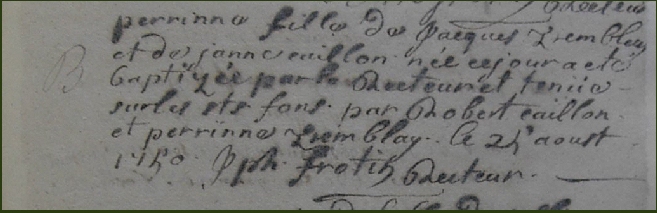 Recteur
perrinne fille de jacques Tremblay
B
et de janne caillon née ce jour a eté
baptizée par le Recteur et tenüe
sur les sts fons par Robert caillon
et perrinne Tremblay. le 24 aoust
1750. Jph. frotin Recteur.